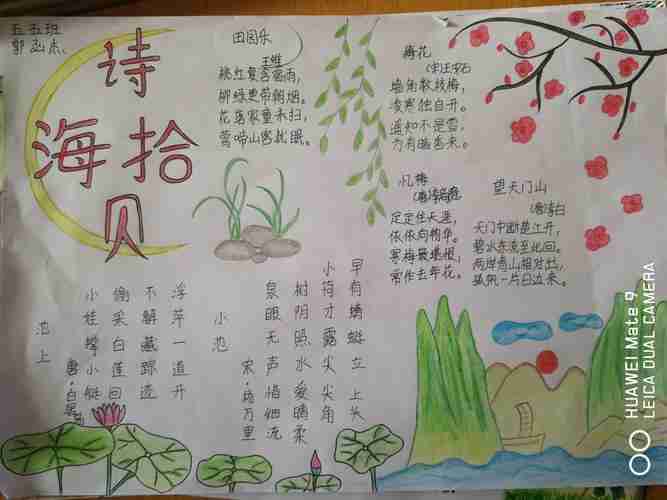 五五班
诗海拾贝
田园乐
王维
桃红复含宿雨,
柳绿更带朝烟。
花落家童未扫,
莺啼山客犹眠。
梅花
(宋)王安石
墙角数枝梅,
凌寒独自开。
遥知不是雪,
为有暗香来。
忆梅
(唐)李商隐
定定住天涯,
依依向物华。
寒梅最堪恨,
常作去年花。
望天门山
(唐)李白
天门中断楚江开,
碧水东流至此回。
两岸青山相对出,
孤帆一片日边来。
池上
唐·白居易
小娃撑小艇
偷采白莲回
不解藏踪迹
浮萍一道开
小池
宋·杨万里
泉眼无声惜细流
树阴照水爱晴柔
小荷才露尖尖角
早有蜻蜓立上头
HUAWEI Mate 9
LEICA DUAL CAMERA